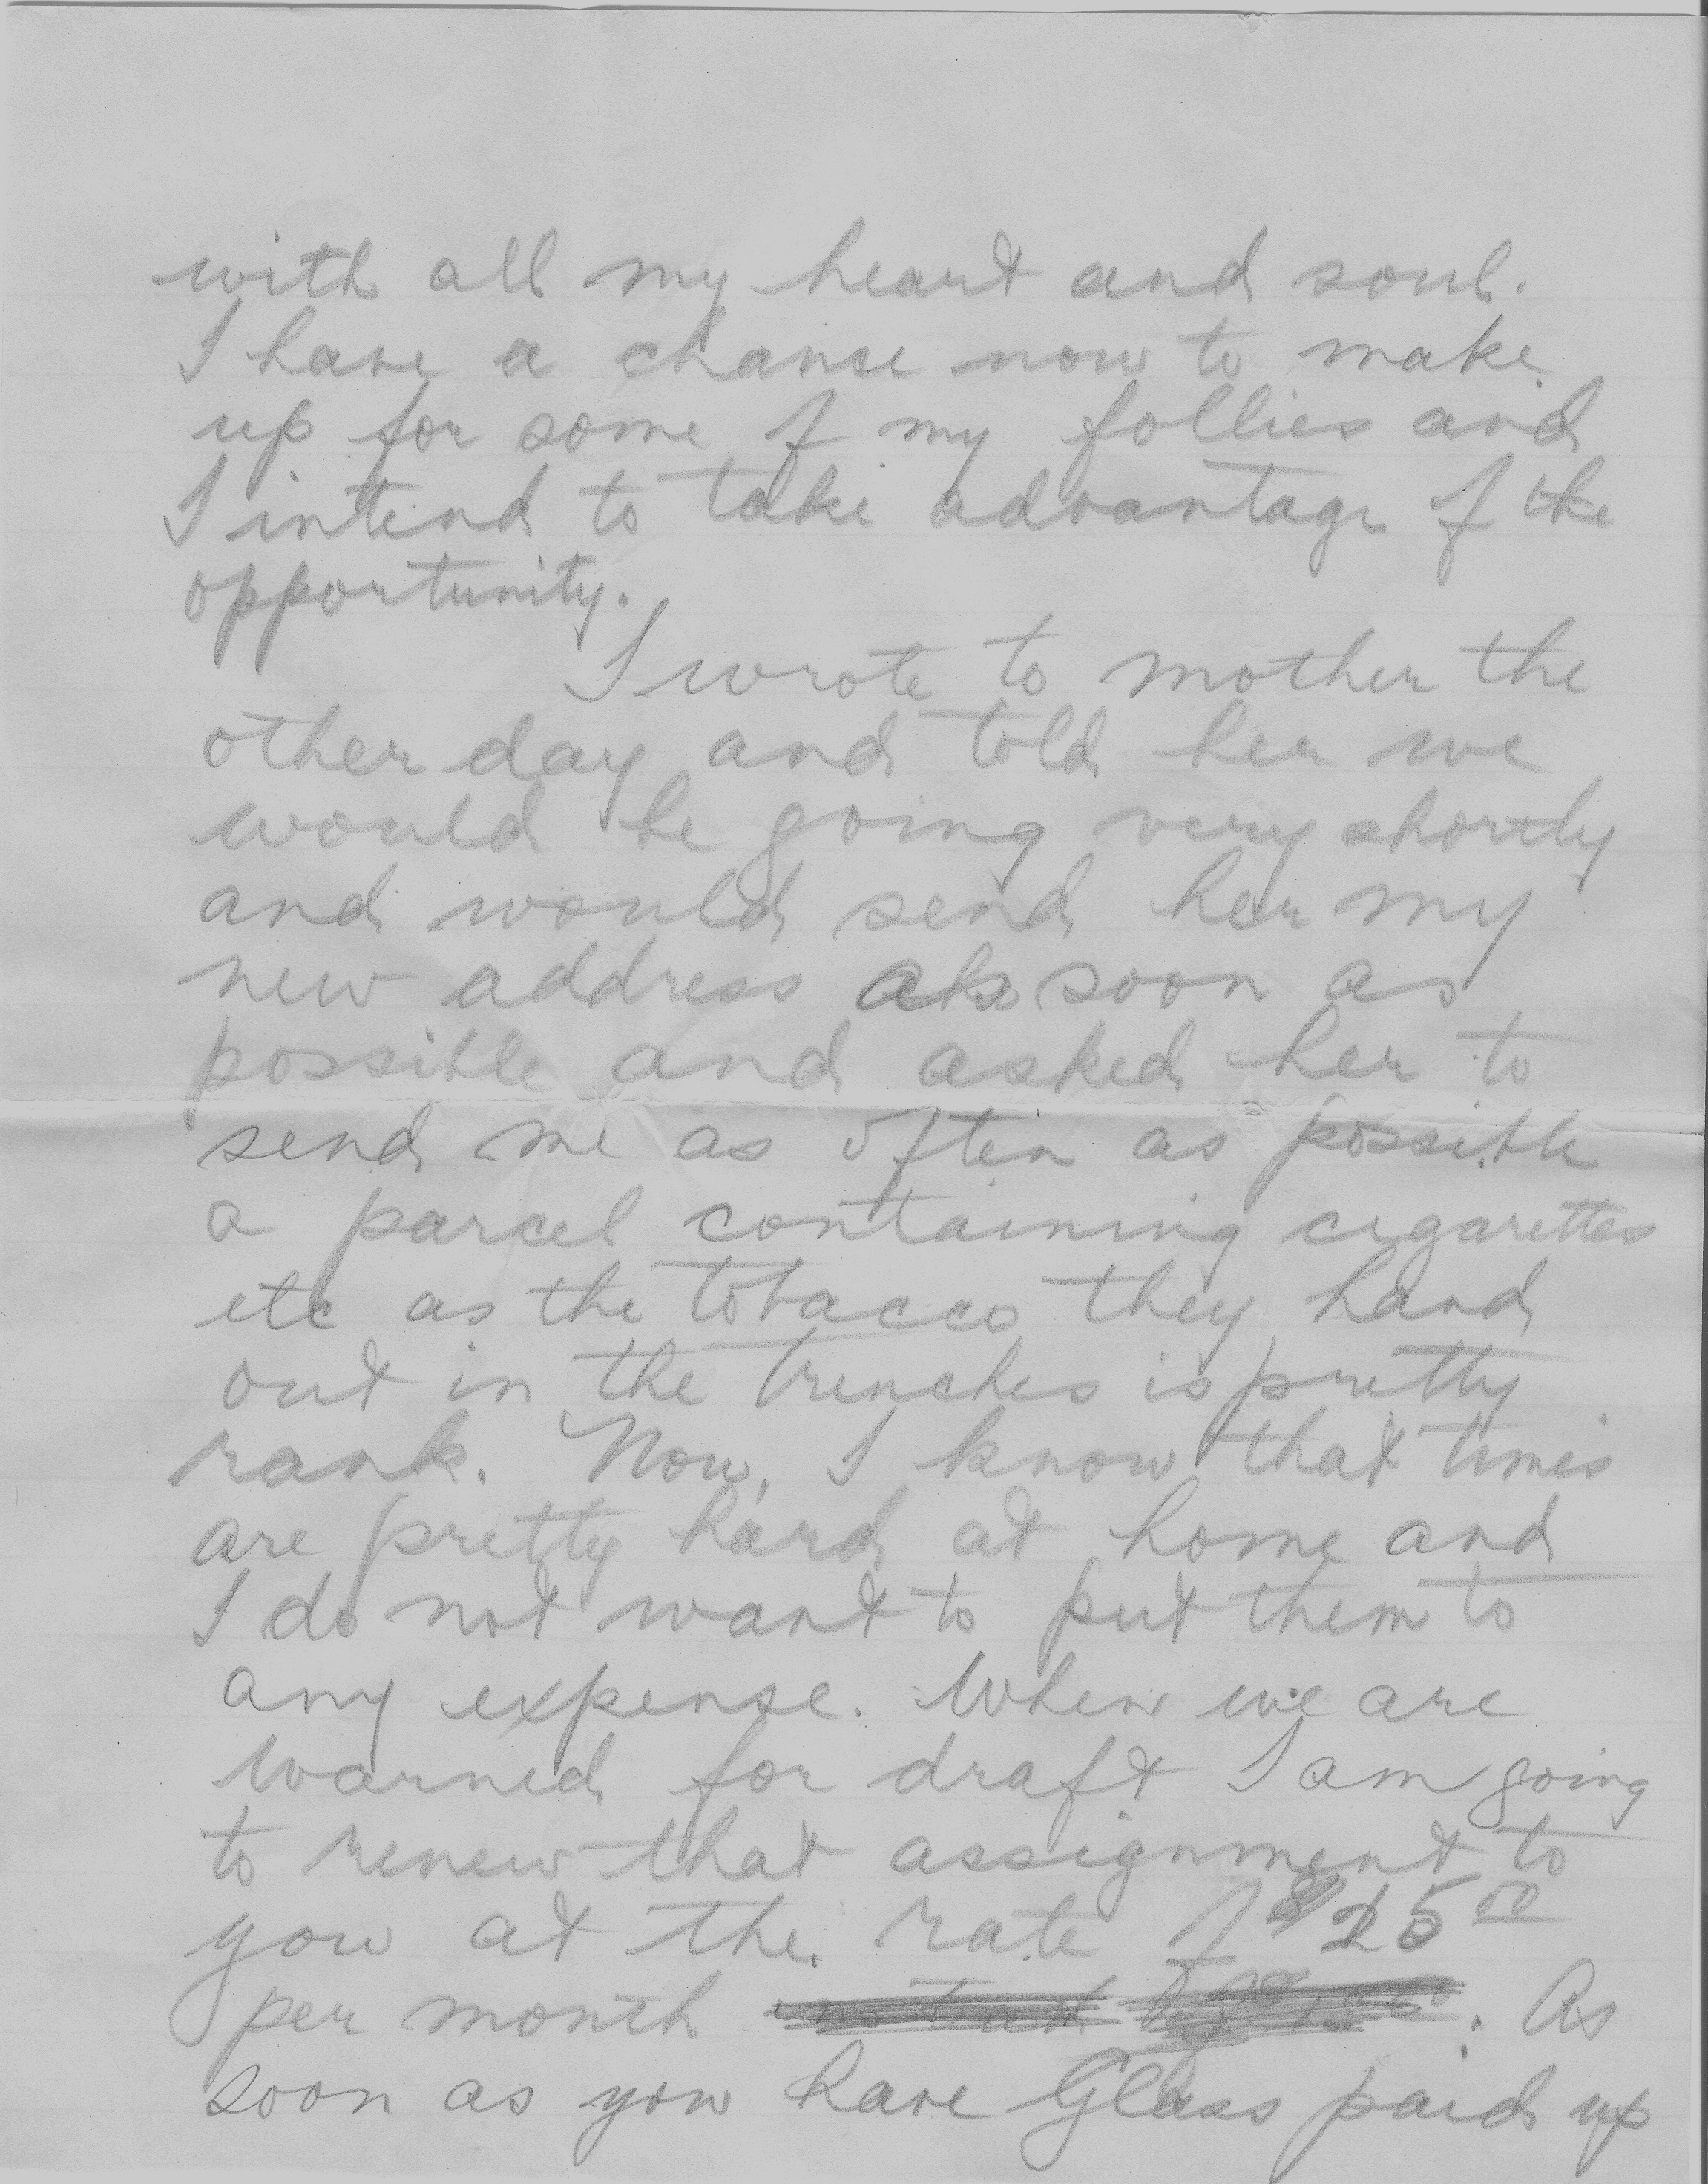 with all my heart and soul.
I have a chance now to make
up for some of my follies and
I intend to take advantage of the
opportunity.
I wrote to mother the
other day and told her we
would be going very shortly
and would send her my
new address as soon as
possible and asked her to
send me as often as possible
a parcel containing cigarettes
etc as the tobacco they hand
out in the trenches is pretty
rank. Now, I know that times
are pretty hard at home and
I do not want to put them to
any expense. When we are
warned for draft I am going
to renew that assignment to
you at the rate of $25.00
per month . As
soon as you have Glass paid up